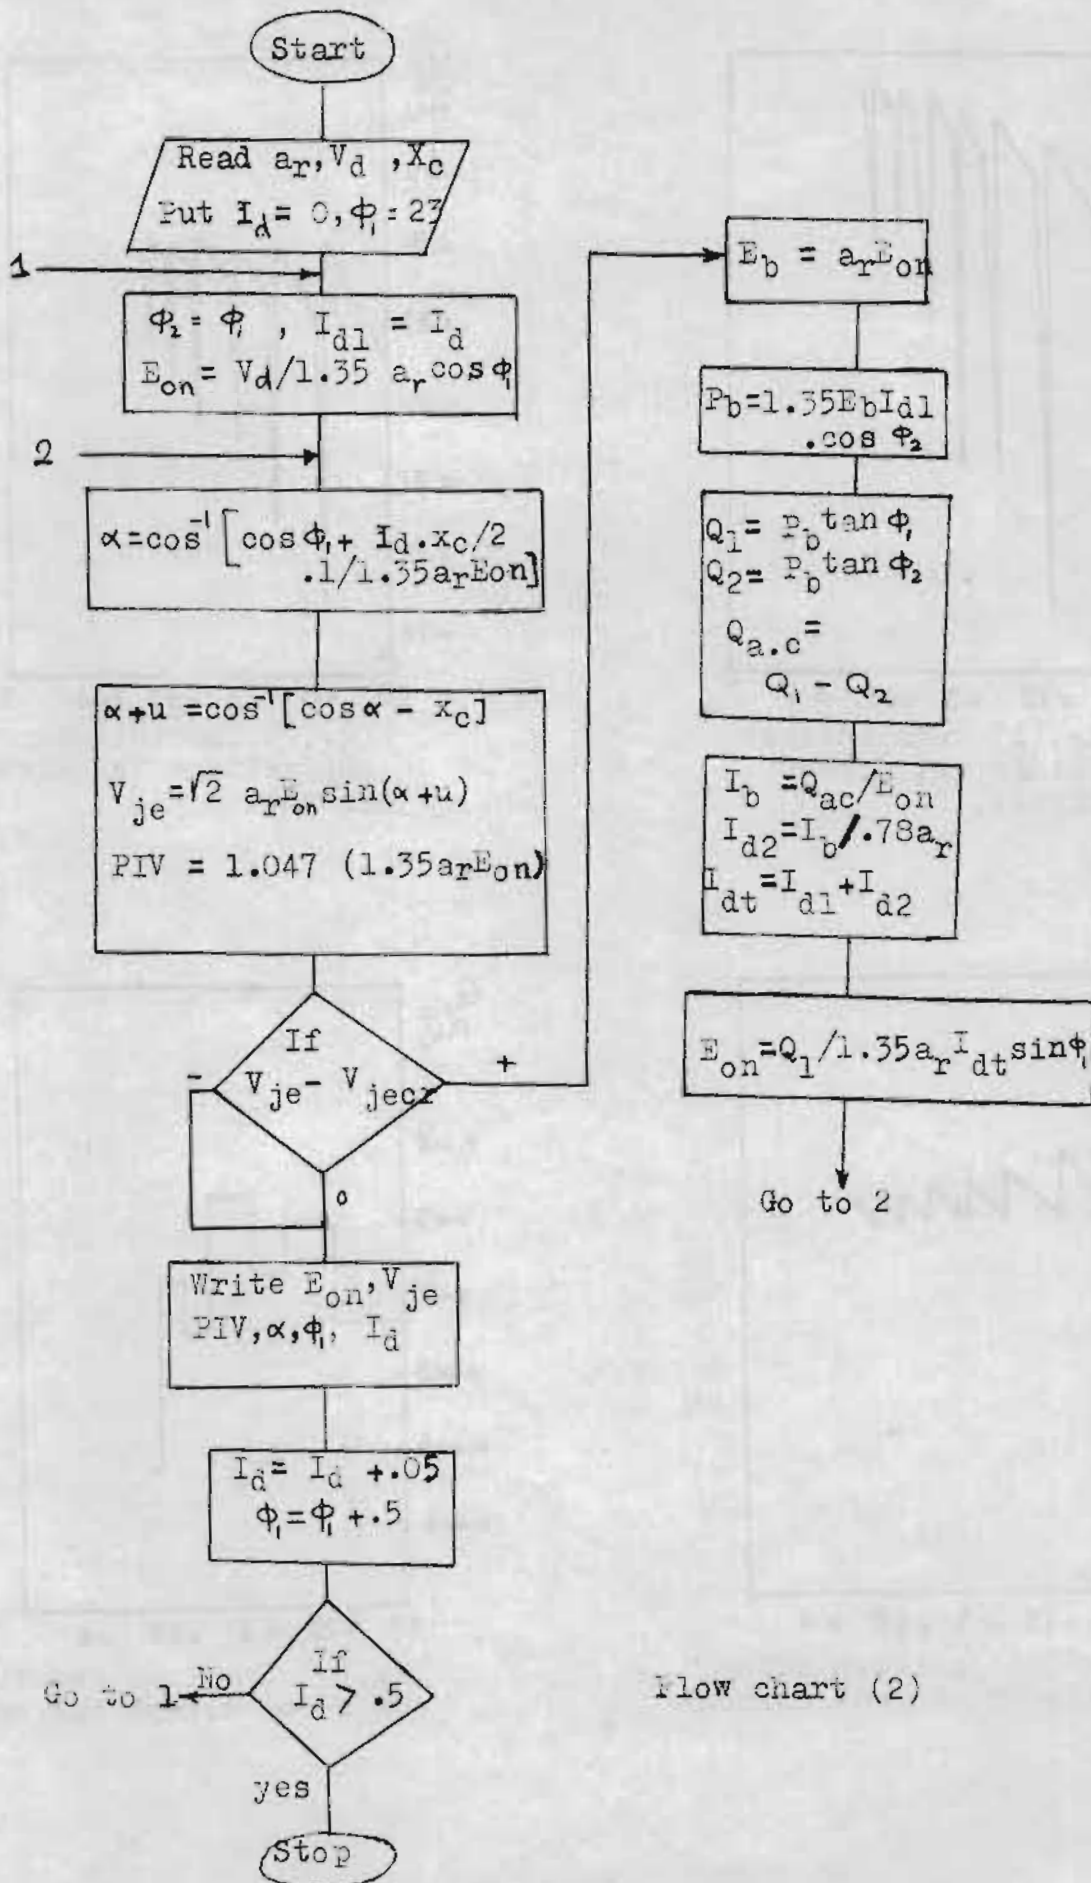 Start
Read a_r, V_d , X_c
Put I_d = 0, ϕ₁ = 23
1
ϕ₂ = ϕ₁ , I_d1 = I_d
E_on = V_d/1.35 a_r cos ϕ₁
2
α = cos⁻¹ [cos ϕ₁ + I_d.x_c/2
.1/1.35a_rEon]
α+u = cos⁻¹[cos α - x_c]
V_je = √2 a_rE_on sin(α+u)
PIV = 1.047 (1.35a_rE_on)
If
V_je - V_jecr
-
+
o
Write E_on, V_je
PIV, α, ϕ₁, I_d
I_d = I_d +.05
ϕ₁ = ϕ₁ + .5
If
I_d > .5
No
Go to 1
yes
Stop
E_b = a_rE_on
P_b=1.35E_bI_d1
.cos ϕ₂
Q_1 = P_b tan ϕ₁
Q_2 = P_b tan ϕ₂
Q_a.c =
Q₁ - Q₂
I_b = Q_ac/E_on
I_d2 = I_b/.78a_r
I_dt = I_d1 + I_d2
E_on = Q_1/1.35a_r I_dt sin ϕ₁
Go to 2
Flow chart (2)